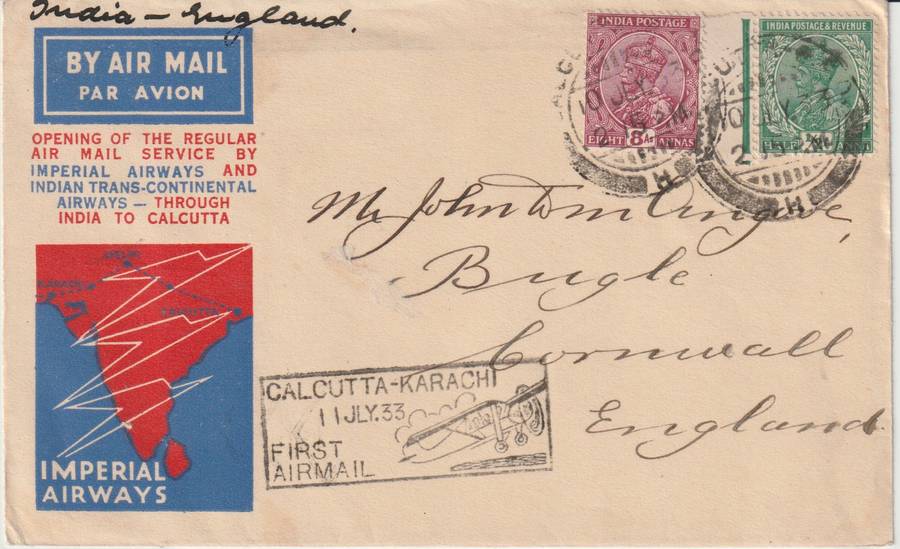 India – England.
BY AIR MAIL
PAR AVION
OPENING OF THE REGULAR
AIR MAIL SERVICE BY
IMPERIAL AIRWAYS AND
INDIAN TRANS-CONTINENTAL
AIRWAYS – THROUGH
INDIA TO CALCUTTA
DELHI
KARACHI
CALCUTTA
IMPERIAL
AIRWAYS
INDIA POSTAGE
8 As
EIGHT ANNAS
INDIA POSTAGE & REVENUE
HALF ANNA
10 JUL
H
H
Mr John
Bugle
Cornwall
England
CALCUTTA-KARACHI
11 JLY.33
FIRST
AIRMAIL